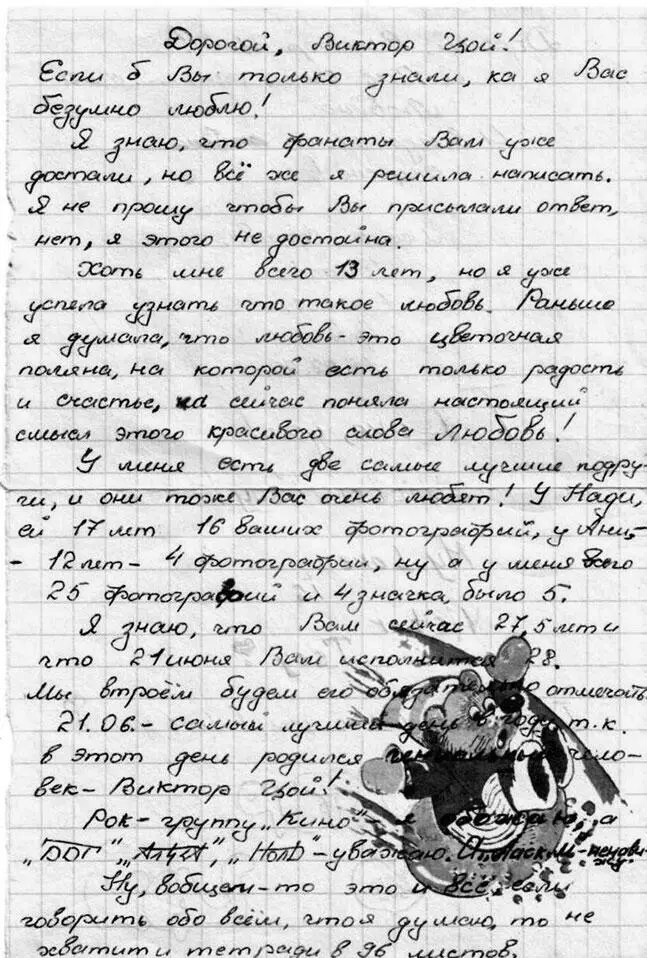 Дорогой, Виктор Цой!
Если б Вы только знали, ка я Вас
безумно люблю!
Я знаю, что фанаты Вам уже
достали, но всё же я решила написать.
Я не прошу чтобы Вы присылали ответ,
нет, я этого не достойна.
Хоть мне всего 13 лет, но я уже
успела узнать что такое любовь. Раньше
я думала, что любовь- это цветочная
поляна, на которой есть только радость
и счастье, а сейчас поняла настоящий
смысл этого красивого слова Любовь!
У меня есть две самые лучшие подру-
ги, и они тоже Вас очень любят! У Нади,
ей 17 лет 16 ваших фотографий, у Ани,-
- 12 лет- 4 фотографии, ну а у меня всего
25 фотографий и 4 значка, было 5.
Я знаю, что Вам сейчас 27,5 лет и
что 21 июня Вам исполнится 28.
Мы втроём будем его обязательно отмечать
21.06.- самый лучший день в году т.к.
в этот день родился гениальный чело-
век- Виктор Цой!
Рок- группу „Кино"- я обожаю, а
„ДДТ", „Алиса", „Ноль"- уважаю. А „Ласк. М."- ненави-
жу.
Ну, вобщем-то это и всё, если
говорить обо всём, что я думаю, то не
хватит и тетради в 96 листов.